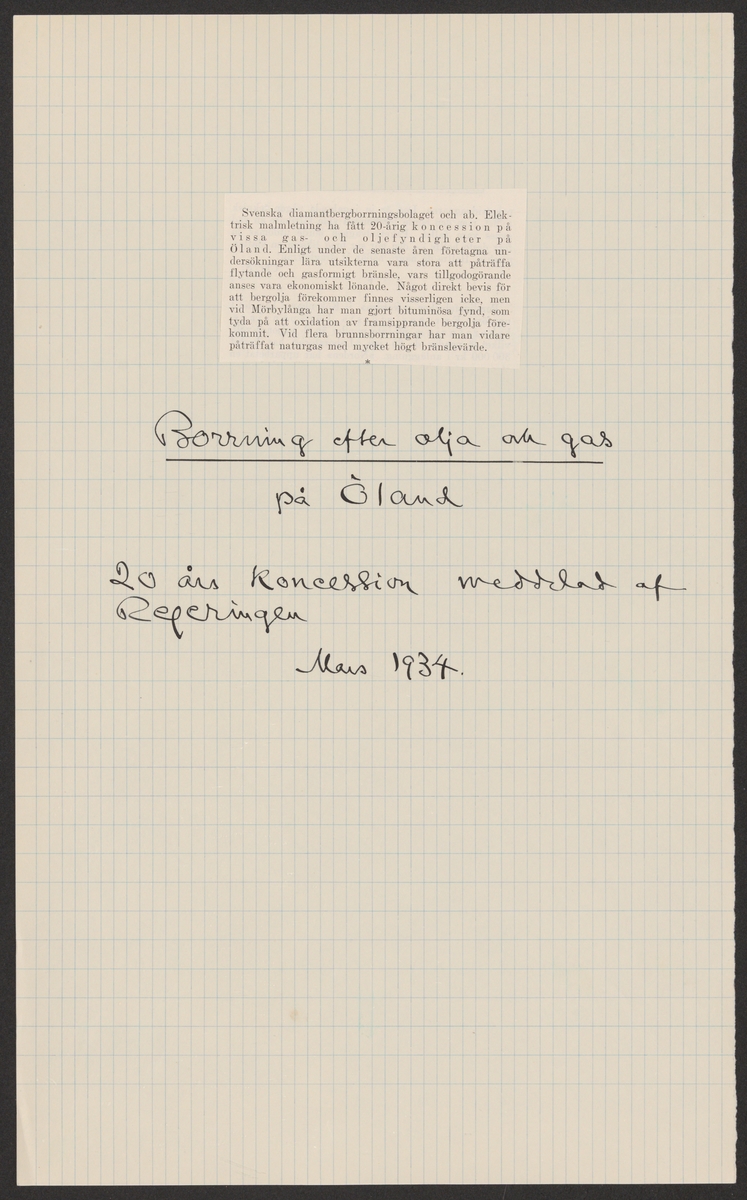 Svenska diamantbergborrningsbolaget och ab. Elek-
trisk malmletning ha fått 20-årig koncession på
vissa gas- och oljefyndigheter på
Öland. Enligt under de senaste åren företagna un-
dersökningar lära utsikterna vara stora att påträffa
flytande och gasformigt bränsle, vars tillgodogörande
anses vara ekonomiskt lönande. Något direkt bevis för
att bergolja förekommer finnes visserligen icke, men
vid Mörbylånga har man gjort bituminösa fynd, som
tyda på att oxidation av framsipprande bergolja före-
kommit. Vid flera brunnsborrningar har man vidare
påträffat naturgas med mycket högt bränslevärde.
*
Borrning efter olja och gas
på Öland
20 års koncession meddelad af
Regeringen
Mars 1934.